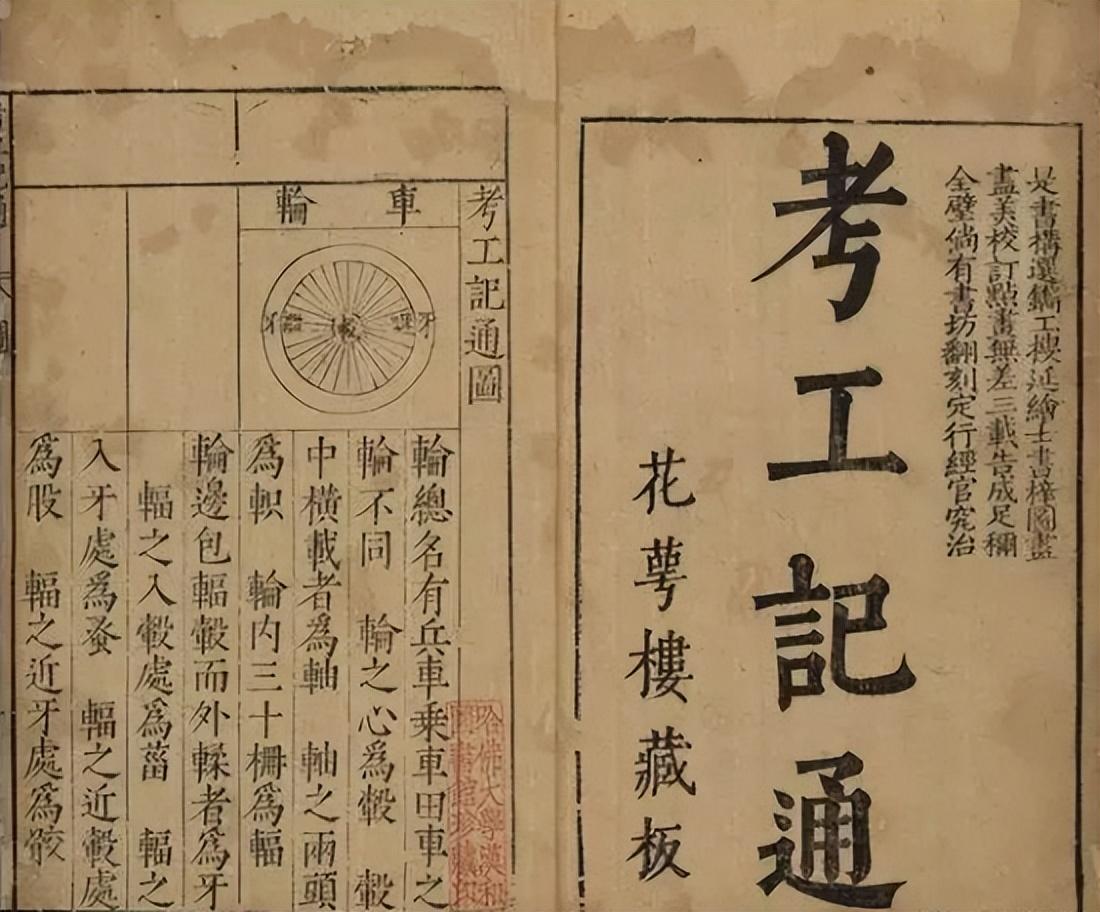 是書構選鐫工樓延繪士書梓圖畫
盡美校訂點畫無差三載告成足稱
全璧倘有書坊翻刻定行經官究治
考工記通
花萼樓藏板
考工記通圖
哈佛大學漢和
圖書館珍藏印
車輪
牙 輻 轂 輻 牙
輪總名有兵車乗車田車之
輪不同 輪之心爲轂 轂
中橫載者爲軸 軸之兩頭
爲軹 輪內三十柵爲輻
輪邊包輻轂而外輮者爲牙
輻之入轂處爲菑 輻之
入牙處爲蚤 輻之近轂處
爲股 輻之近牙處爲骹